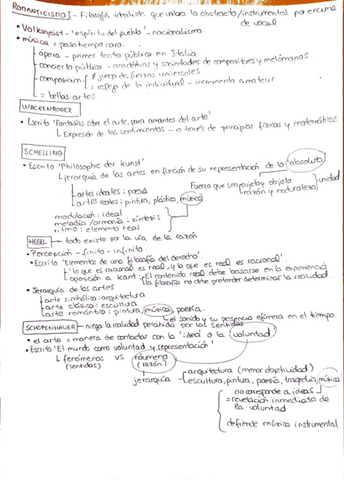 ROMANTICISMO - Filosofía idealista que valora lo abstracto/instrumental por encima de vocal
• Volksgeist - 'espíritu del pueblo' - nacionalismo
• música = pasatiempo caro.
ópera - primer teatro público en Italia
concierto público - academias y sociedades de compositores y melómanos
composición ≠ juego de fuerzas universales
= reflejo de lo individual - incremento amateur
= bellas artes
WACKENRODER
• Escribió 'Fantasías sobre el arte, para amantes del arte'
↳ Expresión de los sentimientos - a través de principios físicos y matemáticos
SCHELLING
• Escribió 'Philosophie der kunst'
↳ jerarquía de las artes en función de su representación de lo absoluto
Fuerza que sea sujeto y objeto
razón y naturaleza
unidad
artes ideales: poesía
artes reales: pintura, plástica, música
modulación: ideal
melodía/armonía: síntesis
ritmo: elemento real
HEGEL - todo existe por la vía de la razón
• Percepción - finito - infinito
• Escribió 'Elementos de una filosofía del derecho'.
'lo que es racional es real, y lo que es real es racional'
oposición a Kant: El contenido real debe basarse en la experiencia
la filosofía no debe pretender determinar la realidad.
• Jerarquía de las artes
arte simbólico: arquitectura
arte clásico: escultura
arte romántico: pintura, música, poesía.
el sonido y su presencia efímera en el tiempo
SCHOPENHAUER - niega la realidad percibida por los sentidos
• el arte = manera de contactar con la 'idea' o la voluntad
• Escribió 'El mundo como voluntad y representación'
↳ fenómenos vs noúmeno
(sentidos) (razón)
jerarquía
arquitectura (menor objetividad)
escultura, pintura, poesía, tragedia, música
no corresponde a ideas
= revelación inmediata de la voluntad
defiende música instrumental